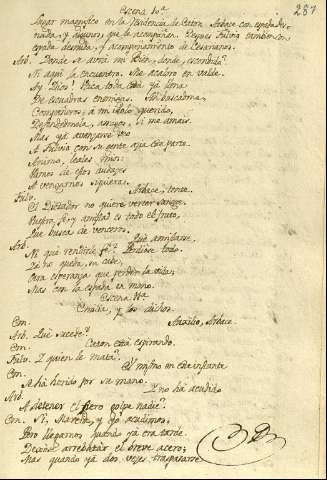 287
Escena 10ª
Lugar magnifico en la Residencia de Caton. Arbace con espada des-
nuda, y algunos que le acompañan. Despues Fulvio tambien con
espada desnuda, y acompañamiento de Cesarianos.
Arb. Donde se avrá mi Bien, donde, escondido?
Ni aqui la encuentro. Me acaloro en valde.
Ay Dios! Utica toda está ya llena
De escuadras enemigas.
Compañeros, á mi idolo querido,
Defendedmela, amigos, si me amais.
Mas ya avanzarse veo
A Fulvio con su gente azia esta parte.
Animo, leales mios:
Vamos de esos audazes
A vengarnos siquiera.
Fulv. Arbace, tente.
El Dictador no quiere verter sangre.
Vuestra fé, y amistad es todo el fruto,
Que busca de venceros.
Arb. Qué amistades.
Ni qué rendirse fé? Perdióse todo.
Ni me queda, ni cabe,
Otra esperanza que perder la vida;
Mas con la espada en mano.
Escena 11ª
Emilia, y los dichos.
Em. Auxilio, Arbace.
Arb. Qué sucede?
Em. Caton está espirando.
Fulv. Y quien le mata?
Em. El mismo en este instante
Se ha herido por su mano.
Arb. Y no ha acudido
A detener el fiero golpe nadie?
Em. Si, Marcia, y yo acudimos;
Pero llegamos quando ya era tarde.
Deciase arrebatar el breve acero;
Mas quando ya dos vezes traspasarse